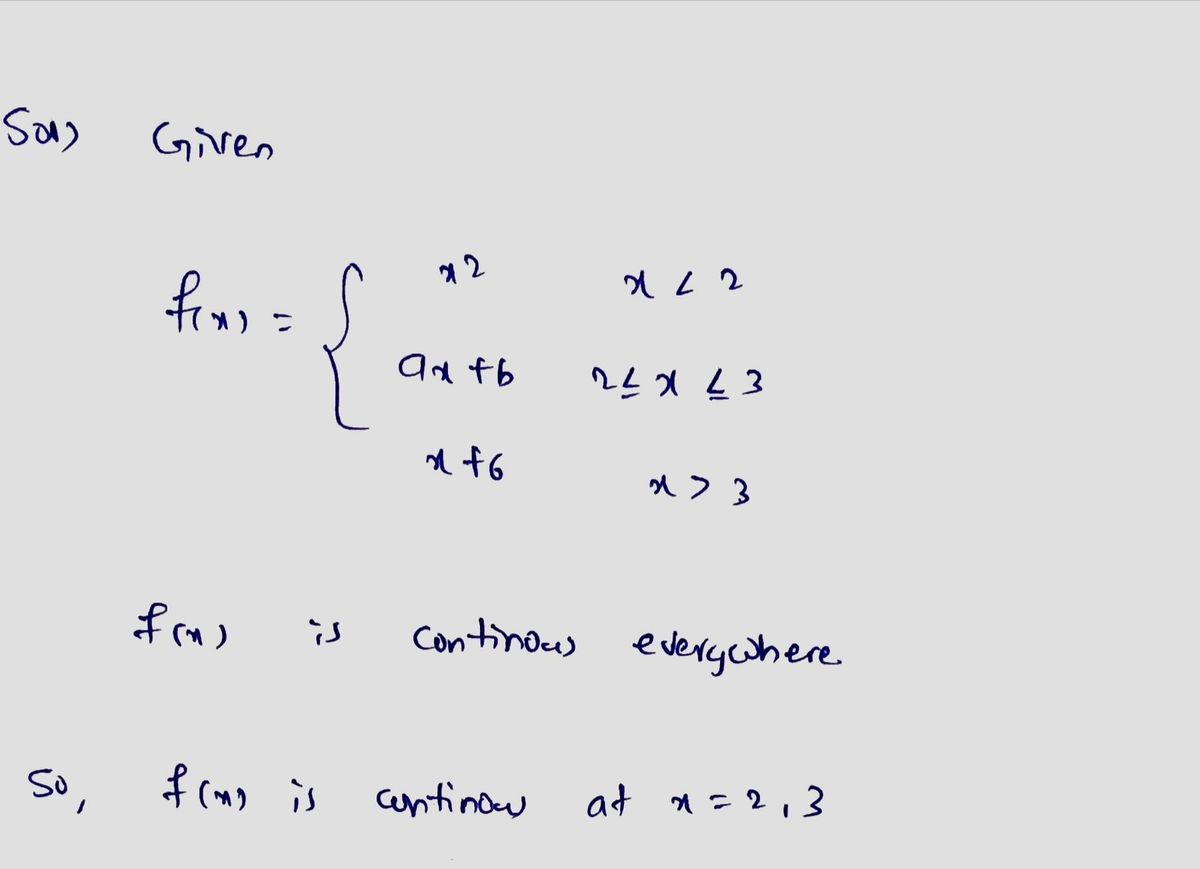 Sol) Given
f(x) = { x2 x < 2
ax + b 2 ≤ x ≤ 3
x + 6 x > 3
f(x) is continous everywhere
So, f(x) is continous at x = 2, 3